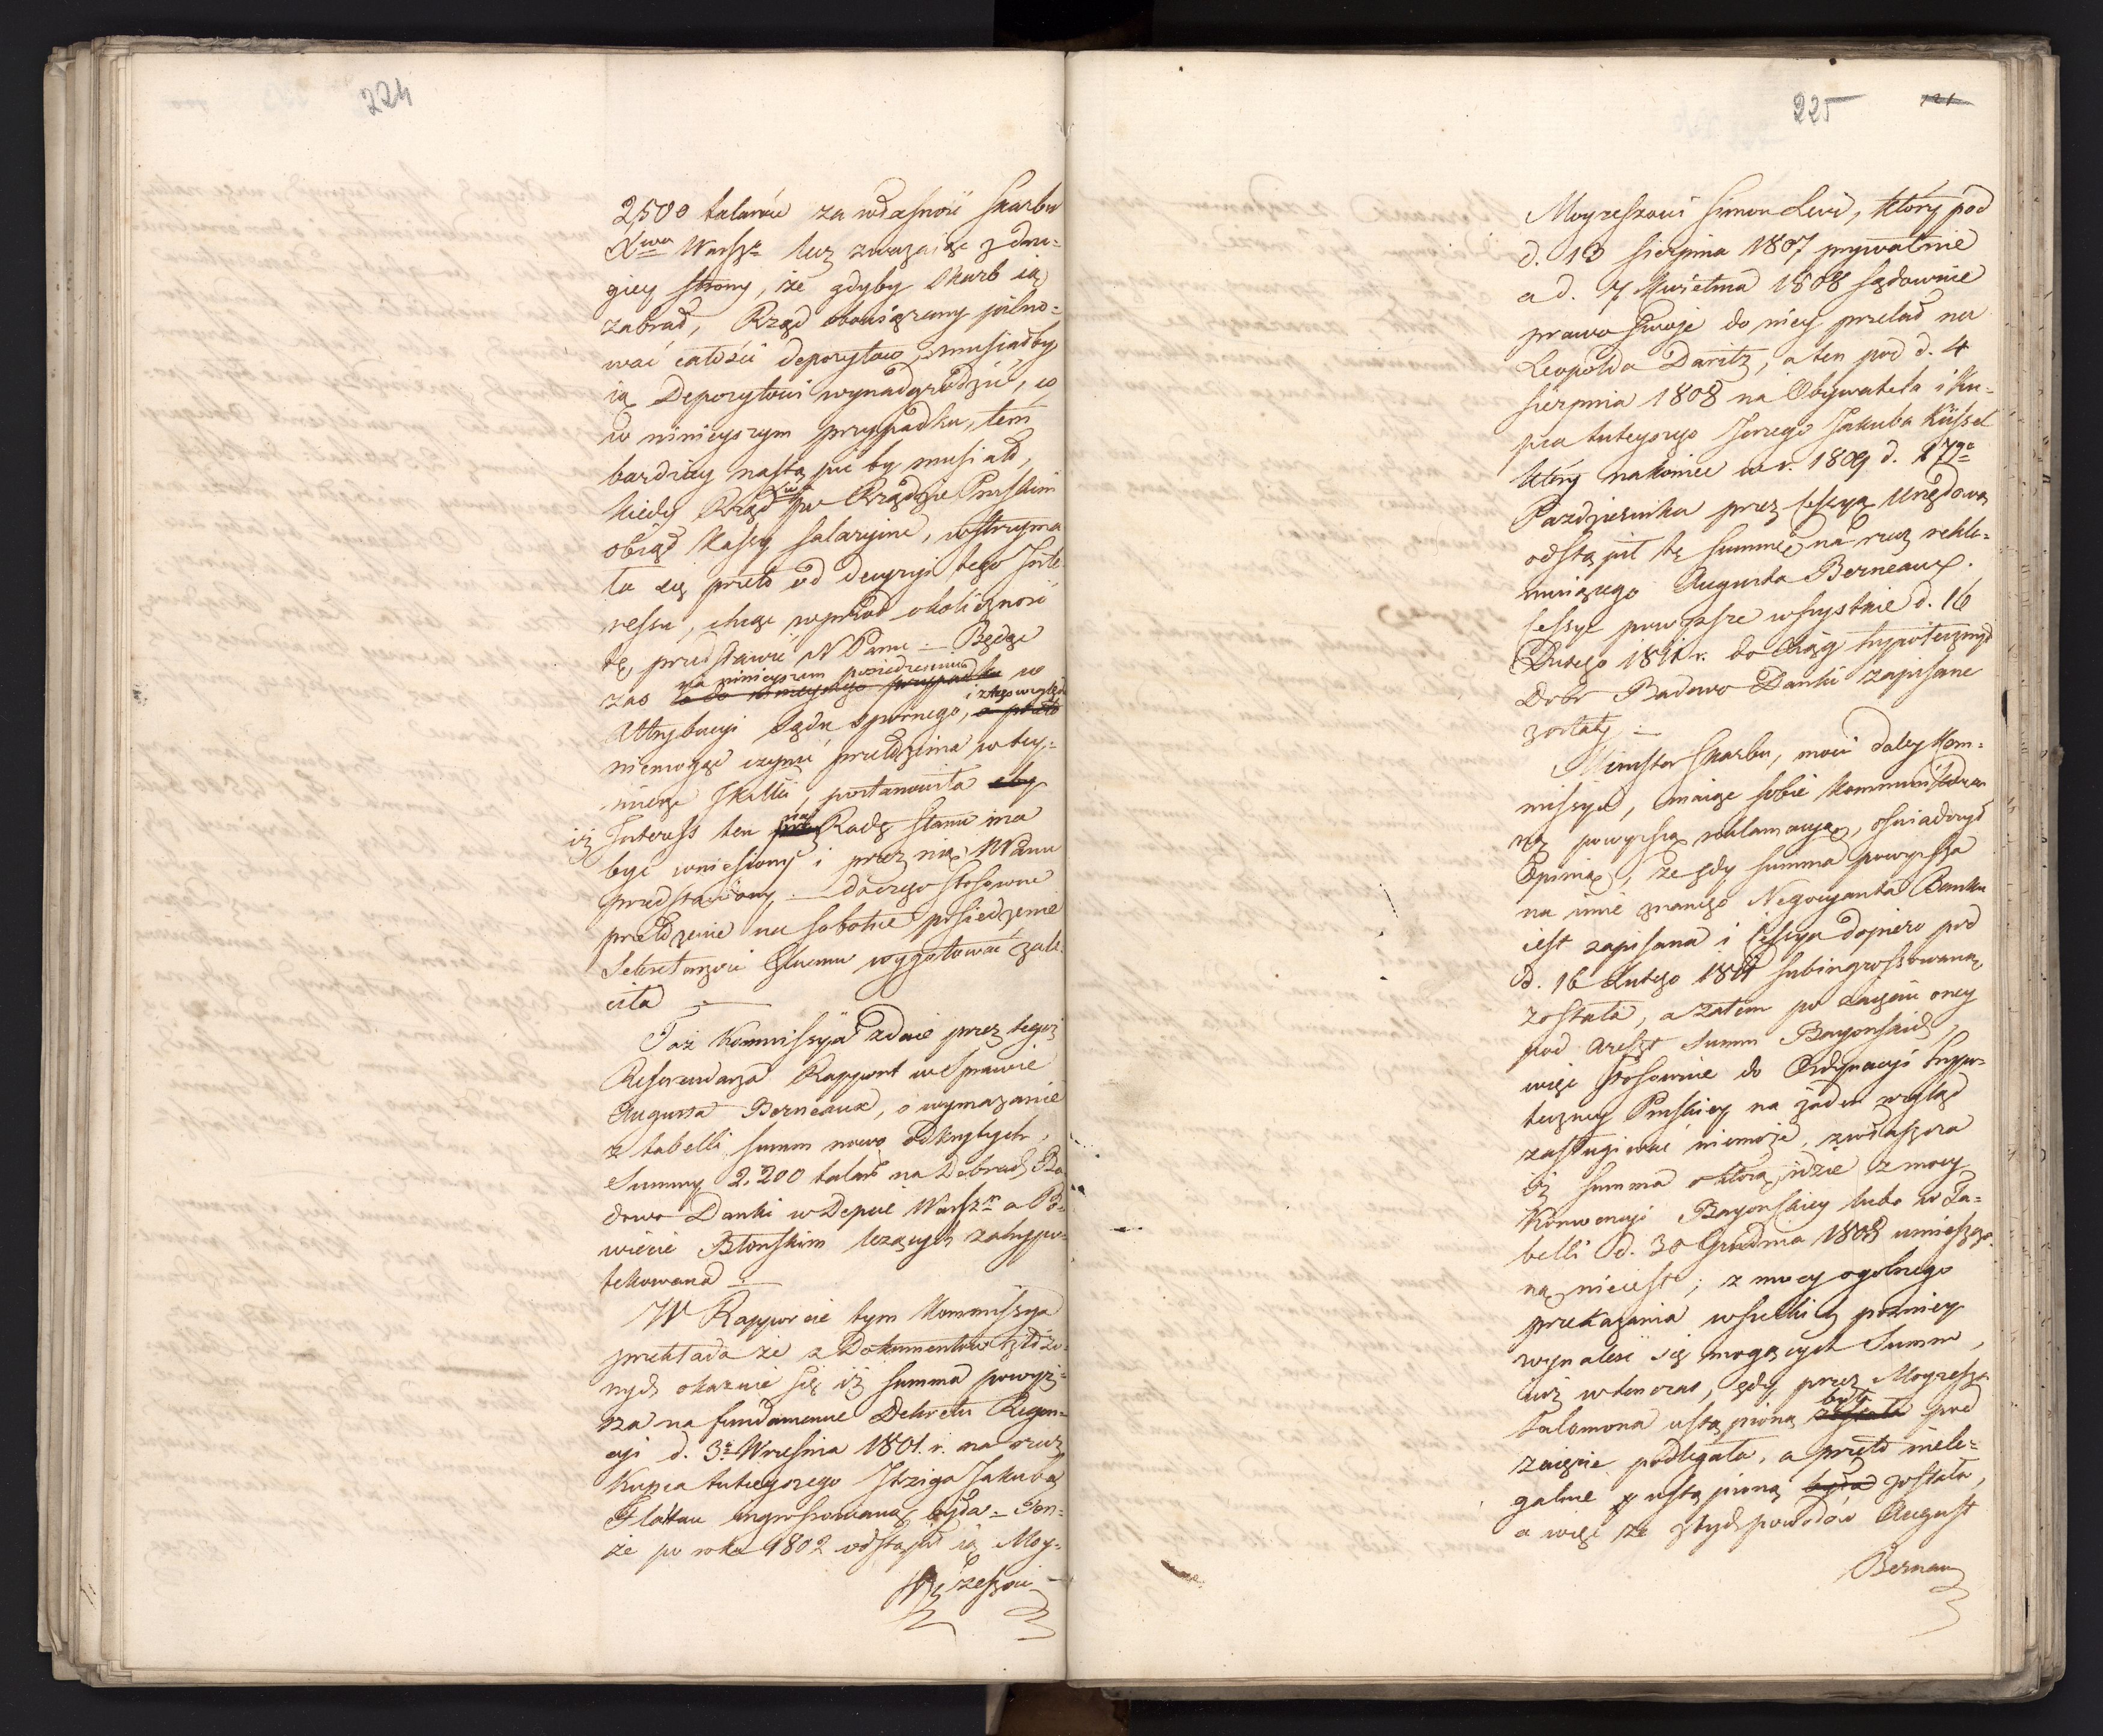 224
2,500 talarów za własność Skarbu
Xtwa Warszo lecz zważaiąc z dru-
giey strony, że gdyby Skarb ią
zabrał, Rząd obowiązany pilno-
wać całości depozytow, musiałby
ią Depozytowi wynadgrodzić, co
w ninieyszym przypadku, tem
bardziey nastąpić by musiało,
kiedy Rząd po Rządzie Pruskim
obiął Kassy salaryine, wstrzyma-
ła się przeto od decyzyi tego Inte-
ressu, chcąc wprzód okoliczność
tę, przedstawić N Panu – Będąc
zaś na ninieyszem posiedzeniu w
Attrybucyi Sądu spornego, i z tego względu
niemogąc czynić przełożenia w tey-
mierze
iż Interess ten na Radę Stanu ma
być wniesiony i przez nią N Panu
przedstawiony – do czego stosowne
przełożenie na sobotnie posiedzenie
Sekretarzowi Swemu wygotować zale-
ciła –
Taż Kommissya zdaie przez tegoż
Referendarza Rapport w Sprawie
Augusta Berneaux, o wymazanie
z tabelli summ nowo odkrytych,
Summy 2,200 talar na Dobrach Ba-
dowo Danki w Depcie Warszm a Po-
wiecie Błonskim leżących zahypo-
tekowaną –
W Rapporcie tym Kommissya
przekłada że z Dokumentów złożo-
nych okazuie się iż summa powyż-
sza na fundamencie Dekretu Regen-
cyi d. 3o Września 1801. r. na rzecz
Kupca tuteyszego Itziga Jakuba
Flatau ingrossowaną była – Ten-
że po roku 1802 odstąpił ią Moy-
żeszowi
225 121
Moyżeszowi Simon Levi, który pod
d. 13 Sierpnia 1807 prywatnie
a d. 7 Kwietnia 1808 sądownie
prawo swoje do niey przelał na
Leopolda Daritz, a ten pod d. 4
Sierpnia 1808 na Obywatela i Ku-
pca tuteyszego Jerzego Jakuba Küssel
który nakoniec w r. 1809 d. 27go
Pazdziernika przez Cessyą Urzędową
odstąpił tę summę na rzecz rekla-
muiącego Augusta Berneaux.
Cessye powyższe wszystkie d. 16
Lutego 1811 r. do Xiąg hypotecznych
Dobr Badowo Danki zapisane
zostały –
Minister Skarbu, mowi daley Kom-
missya, maiąc sobie kommunikowa-
ną powyższą reklamacyą, oświadczył
Opinią, że gdy summa powyższa
na imie znanego Negocyanta Banku
iest zapisana i Cessya dopiero pod
d. 16 Lutego 1811 subingrossowaną
została, a zatem po zaięciu oney
pod areszt Summ Bayonskich,
więc stosownie do Ordynacyi hypo-
teczney Pruskiey na żaden wzgląd
zasługiwać niemoże, zwłaszcza
iż summa o którą idzie z mocy
Konwencyi Bayonskiey lubo w Ta-
belli d. 30 Grudnia 1808 umieszczo-
ną nieiest; z mocy ogolnego
przekazania wszelkich pozniey
wynaleść się mogących Summ,
iuż wtenczas, gdy przez Moyżesza
Salomona ustąpioną była pod
zaięcie podlegała, a przeto niele-
galnie ustąpioną została,
a więc że z tych powodów August
Bernau